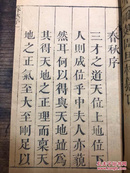 春秋序
三才之道天位上地位下
人則成位乎中夫人亦藐
然耳何以得與天地並為
其得天地之正理而稟天
地之正氣至大至剛足以